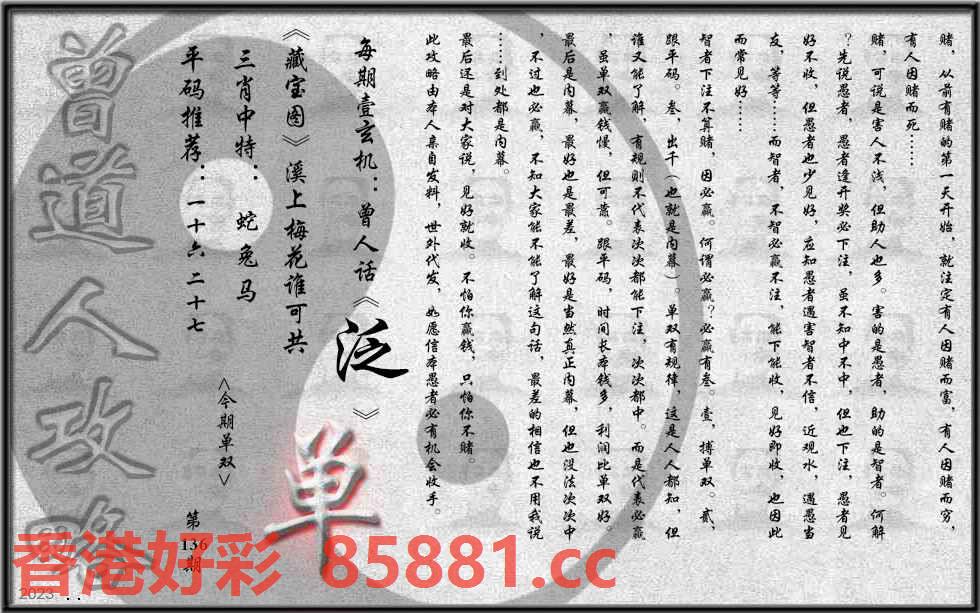 赌，从前有赌的第一天开始，就注定有人因赌而富，有人因赌而穷，
有人因赌而死……
赌，可说是害人不浅，但助人也多。害的是愚者，助的是智者。何解
？先说愚者，愚者逢开奖必下注，虽不知中不中，但也下注，愚者见
好不收，但愚者也少见好，应知愚者遇害智者不信，近观水，遇愚当
友，等等……而智者，不智必赢不注，能下能收，见好即收，也因此
而常见好……
智者下注不算赌，因必赢。何谓必赢？必赢有叁。壹，搏单双。贰，
跟平码。叁，出千（也就是内幕）。单双有规律，这是人人都知，但
谁又能了解，有规则不代表次次都能下注，次次都中。而是代表必赢
，虽单双赢钱慢，但可靠。跟平码，时间长本钱多，利润比单双好。
最后是内幕，最好也是最差，最好是当然真正内幕，但也没法次次中
，不过也必赢，不知大家能不能了解这句话，最差的相信也不用我说
……到处都是内幕。
最后还是对大家说，见好就收。不怕你赢钱，只怕你不赌。
此攻略由本人亲自发料，世外代发，如愿信本愚者必有机会收手。
每期壹玄机：曾人话《泛》
《藏宝图》溪上梅花谁可共
单
三肖中特：蛇兔马
<今期单双>
平码推荐：一十六 二十七
第
136
期
曾道人攻略
香港好彩 85881.cc
2023